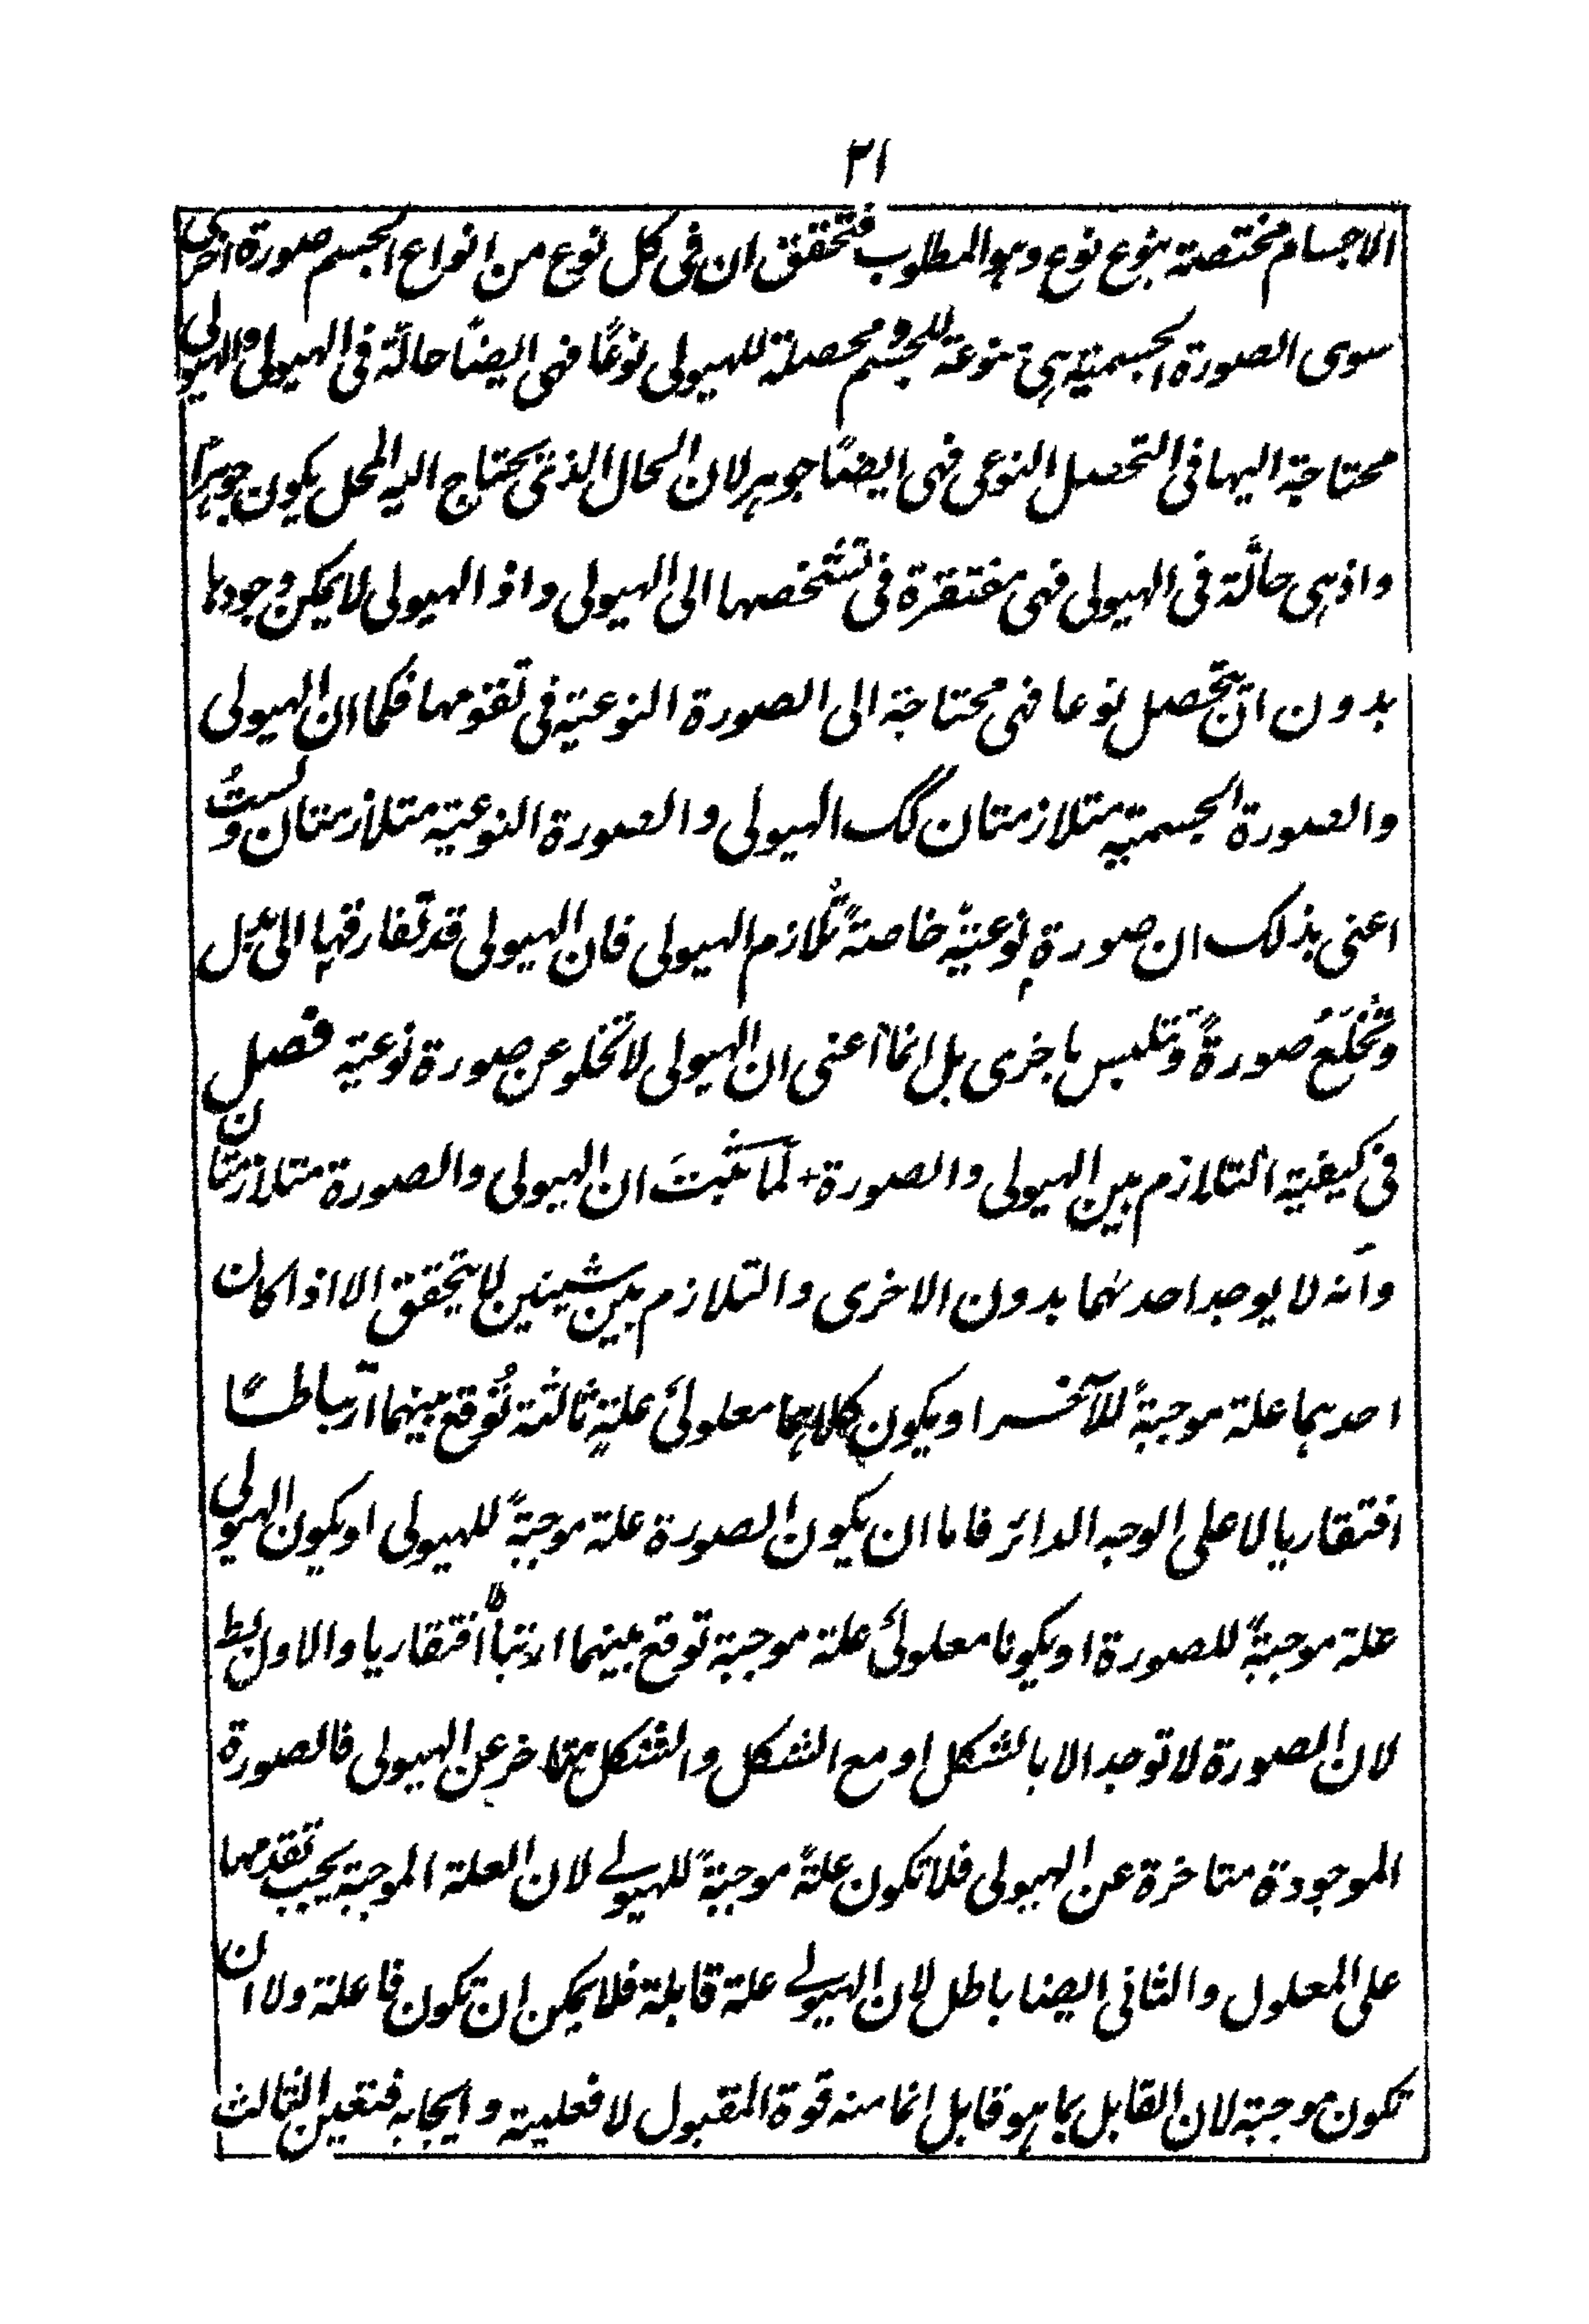 ٢١
الاجسام مختصة بنوع نوع وهو المطلوب فتحقق ان فى كل نوع من انواع الجسم صورة اخرى
سوى الصورة الجسمية هى منوعة للجسم ومحصلة للهيولى نوعًا فهى ايضًا حالّة فى الهيولى والهيولى
محتاجة اليها فى التحصل النوعى فهى ايضًا جوهر لان الحال الذى يحتاج اليه المحل يكون جوهرًا
واذ هى حالّة فى الهيولى فهى مفتقرة فى تشخصها الى الهيولى واذ الهيولى لا يمكن وجودها
بدون ان تحصل نوعا فهى محتاجة الى الصورة النوعية فى تقومها فكما ان الهيولى
والصورة الجسمية متلازمتان كك الهيولى والصورة النوعية متلازمتان ولستُ
اعنى بذلك ان صورة نوعيةً خاصةً تُلازم الهيولى فان الهيولى قد تفارقها الى بدل
وتَخْلَعُ صورةً وتلبس باخرى بل انما اعنى ان الهيولى لا تخلو عن صورة نوعية فصل
فى كيفية التلازم بين الهيولى والصورة + لَمّا ثَبتَ ان الهيولى والصورة متلازمتان
وانه لا يوجد احدٰهما بدون الاخرى والتلازم بين شيئين لا يتحقق الا اذا كان
احدهما علة موجبةً للآخر او يكون كلاهما معلولَىْ علةٍ ثالثة تُوقع بينهما ارتباطًا
افتقاريا لا على الوجه الدائر فاما ان يكون الصورة علة موجبةً للهيولى او يكون الهيولى
علة موجبةً للصورة او يكونا معلولَىْ علة موجبة توقع بينهما ارتباطًا افتقاريا والاول بط
لان الصورة لا توجد الا بالشكل او مع الشكل والشكل متاخر عن الهيولى فالصورة
الموجودة متاخرة عن الهيولى فلا تكون علةً موجبةً للهيولے لان العلة الموجبة يجب تقدمها
على المعلول والثانى ايضا باطل لان الهيولے علة قابلة فلا يمكن ان تكون فاعلة ولا ان
تكون موجبة لان القابل بما هو قابل انما منه قوة المقبول لا فعلية وايجابه فتعين الثالث